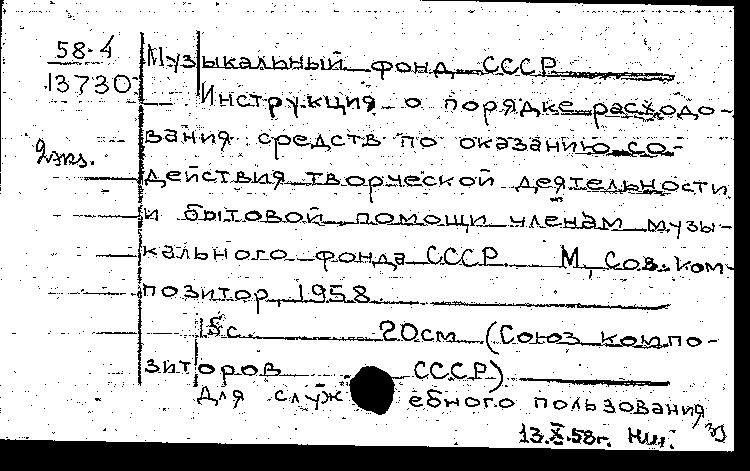 58-4
13730
2 экз.
Музыкальный фонд СССР
Инструкция о порядке расходо-
вания средств по оказанию со-
действия творческой деятельности
и бытовой помощи членам музы-
кального фонда СССР М, Сов. ком-
позитор, 1958
15с. 20см (Союз компо-
зиторов СССР)
Для служебного пользования
13.X.58г.